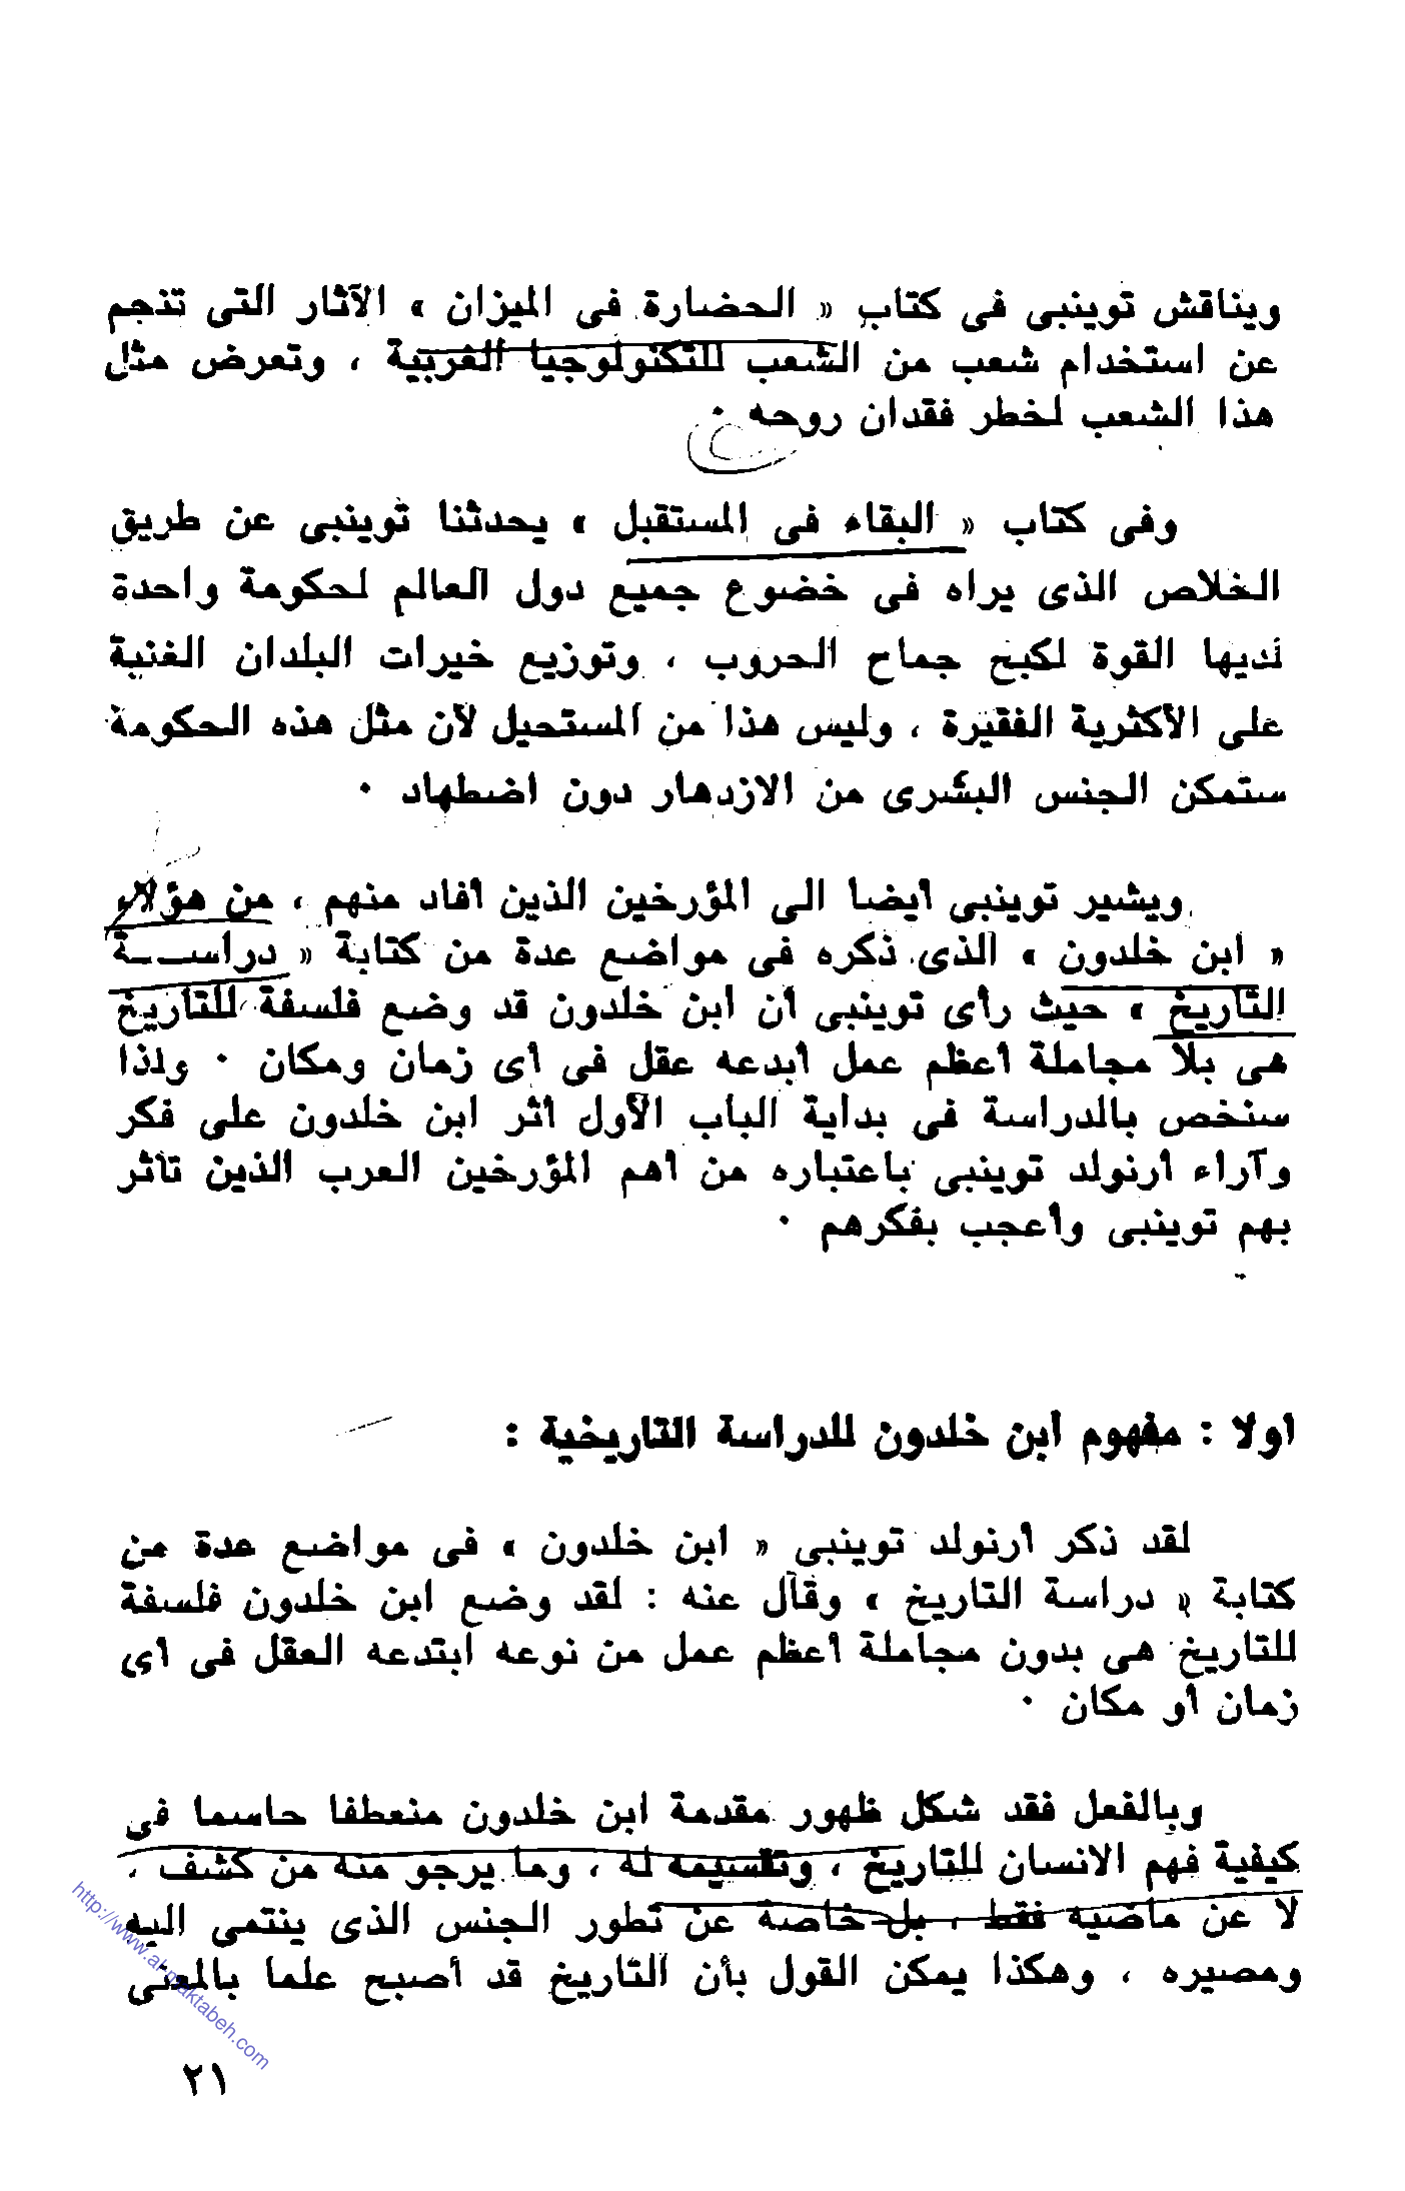 ويناقش توينبى فى كتاب « الحضارة فى الميزان » الآثار التى تنجم
عن استخدام شعب من الشعب للتكنولوجيا الغربية ، وتعرض مثل
هذا الشعب لخطر فقدان روحه ٠
وفى كتاب « البقاء فى المستقبل » يحدثنا توينبى عن طريق
الخلاص الذى يراه فى خضوع جميع دول العالم لحكومة واحدة
لديها القوة لكبح جماح الحروب ، وتوزيع خيرات البلدان الغنية
على الأكثرية الفقيرة ، وليس هذا من المستحيل لأن مثل هذه الحكومة
ستمكن الجنس البشرى من الازدهار دون اضطهاد ٠
ويشير توينبى أيضا الى المؤرخين الذين أفاد منهم ، من هؤلاء
« ابن خلدون » الذى ذكره فى مواضع عدة من كتابة « دراســـة
التاريخ » حيث رأى توينبى أن ابن خلدون قد وضع فلسفة للتاريخ
هى بلا مجاملة أعظم عمل أبدعه عقل فى أى زمان ومكان ٠ ولذا
سنخص بالدراسة فى بداية الباب الأول أثر ابن خلدون على فكر
وآراء أرنولد توينبى باعتباره من أهم المؤرخين العرب الذين تأثر
بهم توينبى وأعجب بفكرهم ٠
أولا : مفهوم ابن خلدون للدراسة التاريخية :
لقد ذكر أرنولد توينبى « ابن خلدون » فى مواضع عدة من
كتابة « دراسة التاريخ » وقال عنه : لقد وضع ابن خلدون فلسفة
للتاريخ هى بدون مجاملة أعظم عمل من نوعه ابتدعه العقل فى أى
زمان أو مكان ٠
وبالفعل فقد شكل ظهور مقدمة ابن خلدون منعطفا حاسما فى
كيفية فهم الانسان للتاريخ ، وتقسيمه له ، وما يرجو منه من كشف ،
لا عن ماضيه فقط ، بل خاصة عن تطور الجنس الذى ينتمى اليه
ومصيره ، وهكذا يمكن القول بأن التاريخ قد أصبح علما بالمعنى
http://www.al-maktabeh.com
٢١